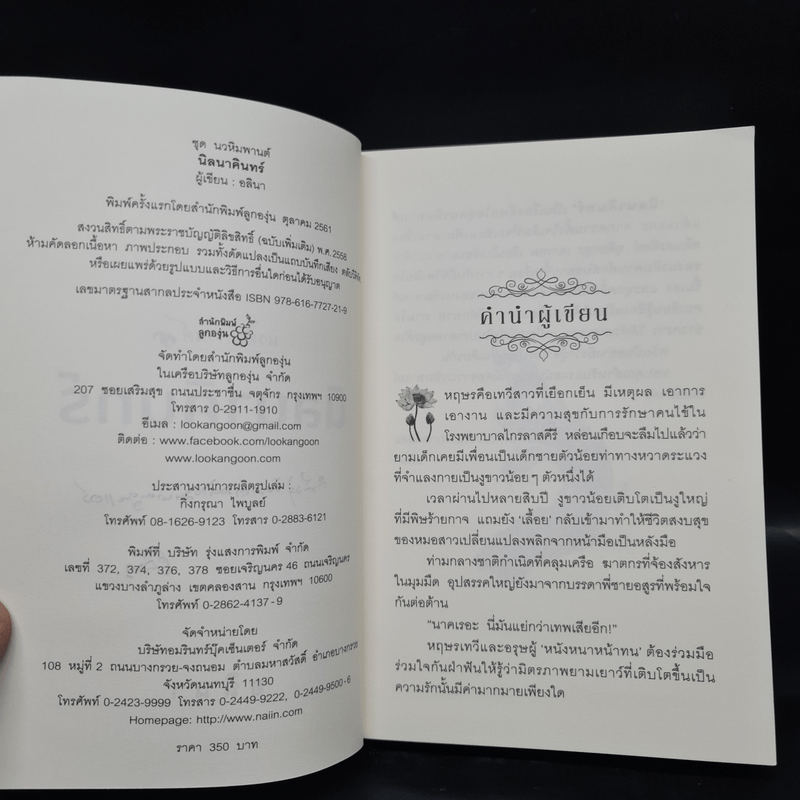 ชุด นวหิมพานต์
นิลนาคินทร์
ผู้เขียน : อลินา
พิมพ์ครั้งแรกโดยสำนักพิมพ์ลูกองุ่น ตุลาคม 2561
สงวนสิทธิ์ตามพระราชบัญญัติลิขสิทธิ์ (ฉบับเพิ่มเติม) พ.ศ. 2558
ห้ามคัดลอกเนื้อหา ภาพประกอบ รวมทั้งดัดแปลงเป็นแถบบันทึกเสียง
หรือเผยแพร่ด้วยรูปแบบและวิธีการอื่นใดก่อนได้รับอนุญาต
เลขมาตรฐานสากลประจำหนังสือ ISBN 978-616-7727-21-9
สำนักพิมพ์
ลูกองุ่น
จัดทำโดยสำนักพิมพ์ลูกองุ่น
ในเครือบริษัทลูกองุ่น จำกัด
207 ซอยเสริมสุข ถนนประชาชื่น จตุจักร กรุงเทพฯ 10900
โทรสาร 0-2911-1910
อีเมล : lookangoon@gmail.com
ติดต่อ : www.facebook.com/lookangoon
www.lookangoon.com
ประสานงานการผลิตรูปเล่ม :
กิ่งกรุณา ไพบูลย์
โทรศัพท์ 08-1626-9123 โทรสาร 0-2883-6121
พิมพ์ที่ บริษัท รุ่งแสงการพิมพ์ จำกัด
เลขที่ 372, 374, 376, 378 ซอยเจริญนคร 46 ถนนเจริญนคร
แขวงบางลำภูล่าง เขตคลองสาน กรุงเทพฯ 10600
โทรศัพท์ 0-2862-4137-9
จัดจำหน่ายโดย
บริษัทอมรินทร์บุ๊คเซ็นเตอร์ จำกัด
108 หมู่ที่ 2 ถนนบางกรวย-จงถนอม ตำบลมหาสวัสดิ์ อำเภอบางกรวย
จังหวัดนนทบุรี 11130
โทรศัพท์ 0-2423-9999 โทรสาร 0-2449-9222, 0-2449-9500-6
Homepage: http://www.naiin.com
ราคา 350 บาท
คำนำผู้เขียน
หฤษรคือเทวีสาวที่เยือกเย็น มีเหตุผล เอาการ
เอางาน และมีความสุขกับการรักษาคนไข้ใน
โรงพยาบาลไกรลาสคีรี หล่อนเกือบจะลืมไปแล้วว่า
ยามเด็กเคยมีเพื่อนเป็นเด็กชายตัวน้อยท่าทางหวาดระแวง
ที่จำแลงกายเป็นงูขาวน้อยๆ ตัวหนึ่งได้
เวลาผ่านไปหลายสิบปี งูขาวน้อยเติบโตเป็นงูใหญ่
ที่มีพิษร้ายกาจ แถมยัง 'เลื้อย' กลับเข้ามาทำให้ชีวิตสงบสุข
ของหมอสาวเปลี่ยนแปลงพลิกจากหน้ามือเป็นหลังมือ
ท่ามกลางชาติกำเนิดที่คลุมเครือ ฆาตกรที่จ้องสังหาร
ในมุมมืด อุปสรรคใหญ่ยังมาจากบรรดาพี่ชายอสูรที่พร้อมใจ
กันต่อต้าน
"นาคเรอะ นี่มันแย่กว่าเทพเสียอีก!"
หฤษรเทวีและอรุษผู้ 'หนังหนาหน้าทน' ต้องร่วมมือ
ร่วมใจกันฝ่าฟันให้รู้ว่ามิตรภาพยามเยาว์ที่เติบโตขึ้นเป็น
ความรักนั้นมีค่ามากมายเพียงใด